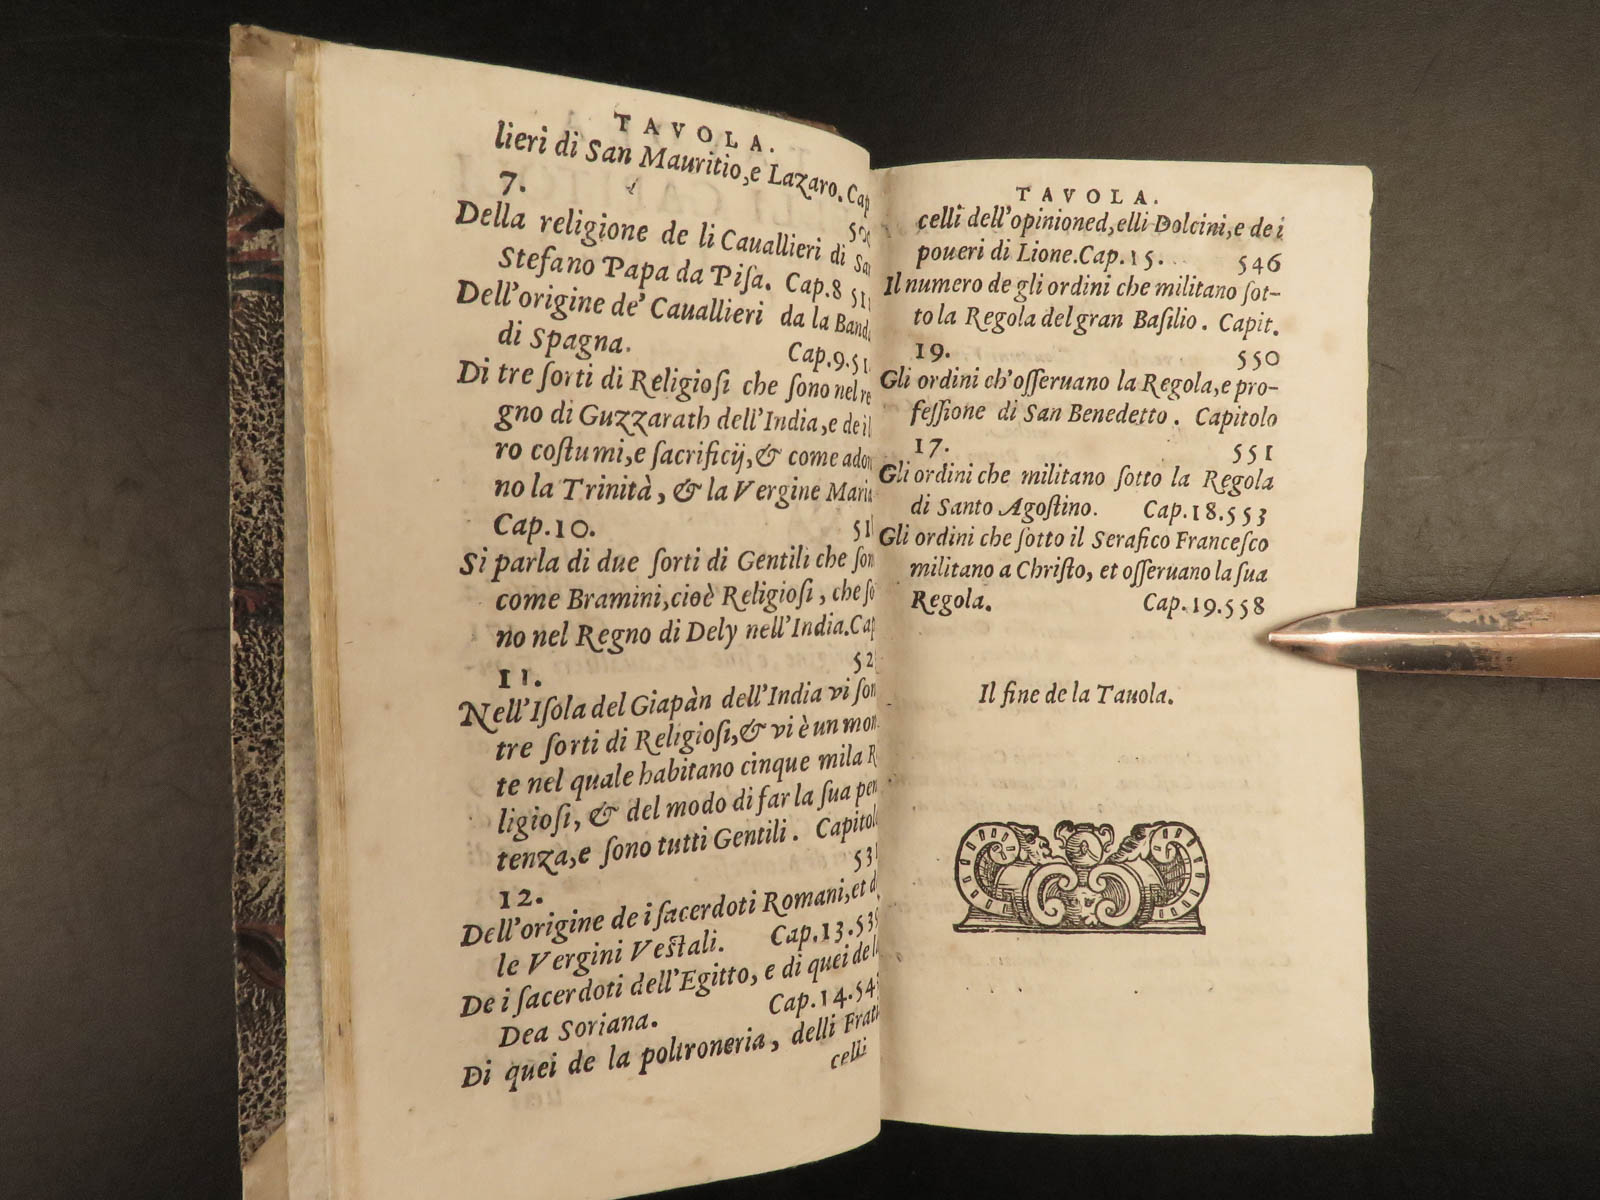 TAVOLA.
lieri di San Mauritio, e Lazaro. Cap
7.
Della religione de li Cauallieri di
Stefano Papa da Piſa. Cap.8
Dell'origine de' Cauallieri da la
di Spagna. Cap.9.
Di tre ſorti di Religioſi che ſono nel re
gno di Guzzarath dell'India, e de i
ro coſtumi, e ſacrificij, & come
no la Trinità, & la Vergine
Cap.10.
Si parla di due ſorti di Gentili che
come Bramini, cioè Religioſi, che
no nel Regno di Dely nell'India. Cap
11.
Nell'Iſola del Giapàn dell'India vi
tre ſorti di Religioſi, & vi è un mon
te nel quale habitano cinque mila R
ligioſi, & del modo di far la ſua pen
tenza, e ſono tutti Gentili.
12.
Dell'origine de i ſacerdoti Romani, et
le Vergini Veſtali. Cap.13.
De i ſacerdoti dell'Egitto, e di quei de
Dea Soriana. Cap.14.
Di quei de la poltroneria, delli
celli
TAVOLA.
celli dell'opinioned, elli Dolcini, e de i
poueri di Lione. Cap.15. 546
Il numero de gli ordini che militano ſot-
to la Regola del gran Baſilio. Capit.
19. 550
Gli ordini ch'oſſeruano la Regola, e pro-
feſſione di San Benedetto. Capitolo
17. 551
Gli ordini che militano ſotto la Regola
di Santo Agoſtino. Cap.18. 553
Gli ordini che ſotto il Serafico Franceſco
militano a Chriſto, et oſſeruano la ſua
Regola. Cap.19. 558
Il fine de la Tauola.